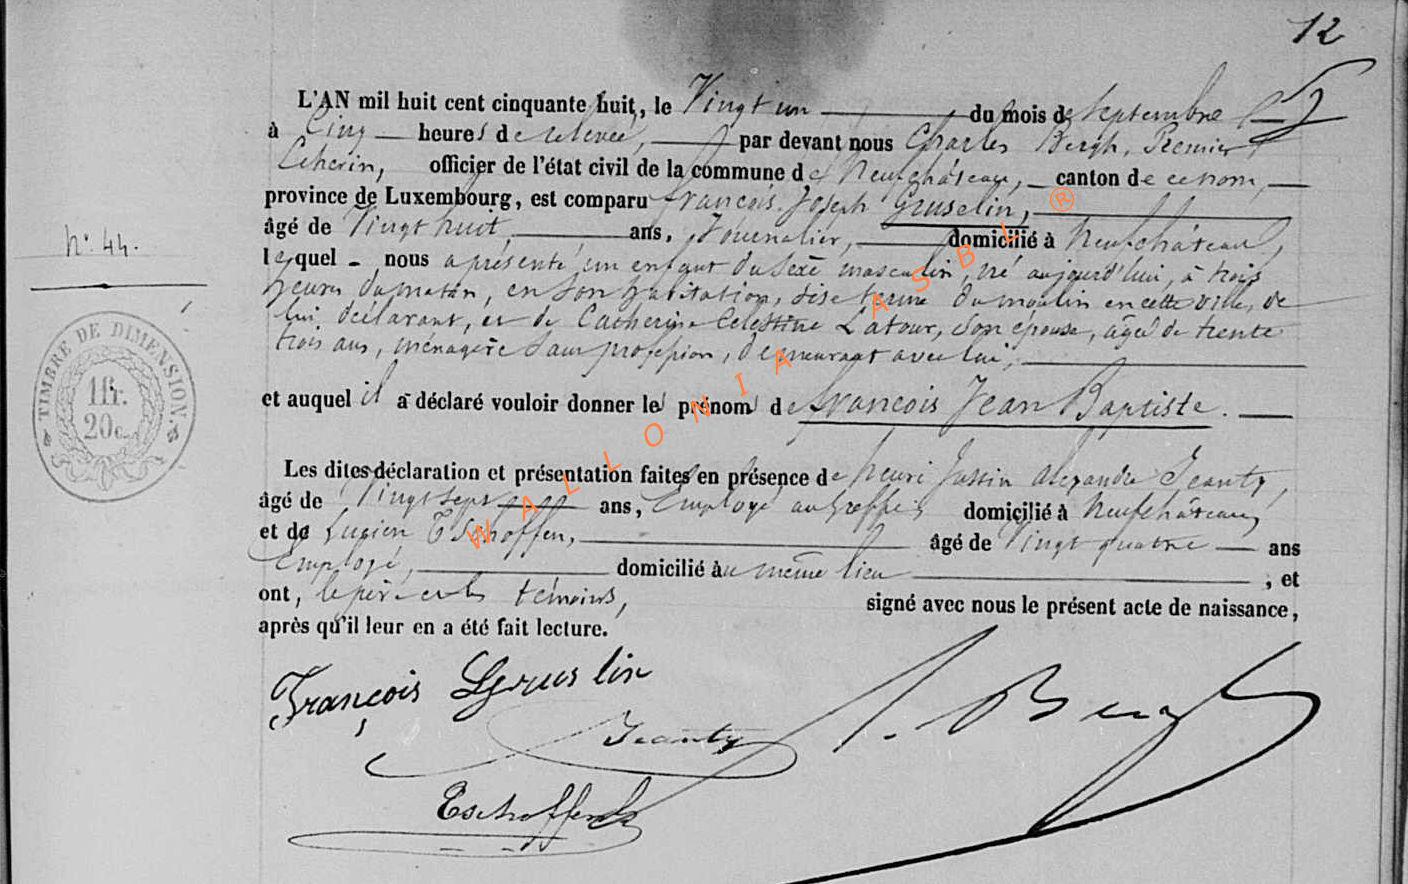 12
L'AN mil huit cent cinquante huit, le Vingt un du mois de Septembre
à Cinq heures de relevée, par devant nous Charles Bergh, Premier
Echevin, officier de l'état civil de la commune de Neufchâteau, canton de ce nom,
province de Luxembourg, est comparu françois Joseph Gruselin,
âgé de Vingt huit, ans, Journalier, domicilié à Neufchâteau,
N° 44.
lequel nous a présenté un enfant du sexe masculin, né aujourd'hui, à trois
heures du matin, en son habitation, sise terme du moulin en cette ville, de
lui déclarant, et de Catherine Celestine Latour, son épouse, âgée de trente
trois ans, ménagère sans profession, demeurant avec lui,
TIMBRE DE DIMENSION.
1fr.
20c.
et auquel il a déclaré vouloir donner les prénoms de françois Jean Baptiste.
Les dites déclaration et présentation faites en présence de henri Justin alexandre Jeanty,
âgé de Vingt sept ans, Employé au greffe, domicilié à Neufchâteau,
et de Lucien Tschoffen, âgé de Vingt quatre ans
Employé, domicilié au même lieu ; et
ont, le père et les témoins, signé avec nous le présent acte de naissance,
après qu'il leur en a été fait lecture.
François Gruslin
Jeanty
Tschoffen
Bergh
WALLONIA ASBL ®